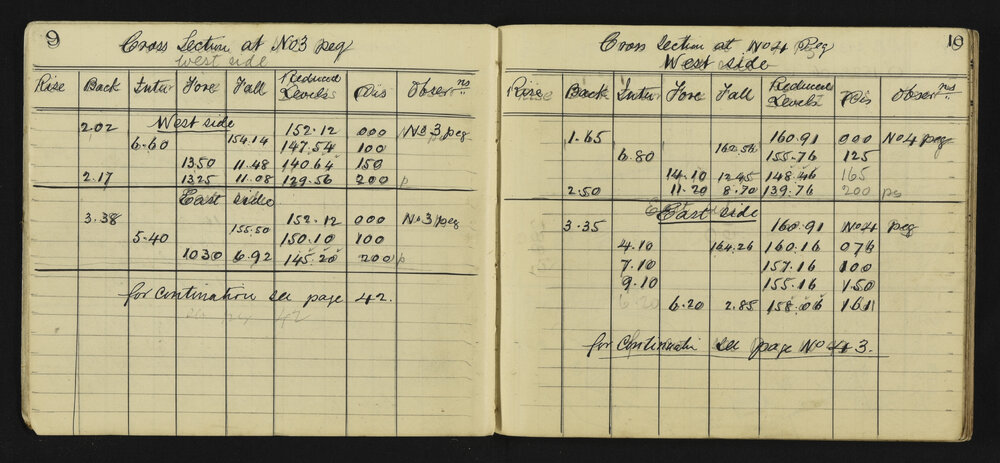 9
Cross Section at No3 peg
West side
Rise Back Inter Fore Fall Reduced Levels Dis Obser.ns
2.02 West side 154.14 152.12 000 No 3 peg
6.60 147.54 100
1350 11.48 140.64 150
2.17 1325 11.08 129.56 200 p
East side
3.38 155.50 152.12 000 No 3 peg
5.40 150.10 100
1030 6.92 145.20 200 p
for contination see page 42.
42
10
Cross Section at No 4 Peg
West side
Rise Back Inter Fore Fall Reduced Levels Dis Obser.ns
1.65 162.56 160.91 000 No 4 peg
6.80 155.76 125
14.10 12.45 148.46 165
2.50 11.20 8.70 139.76 200 pg
East side
3.35 160.91 No 4 peg
4.10 164.26 160.16 076
7.10 157.16 100
9.10 155.16 150
6.20 6.20 2.85 158.06 161
for see page No 43.